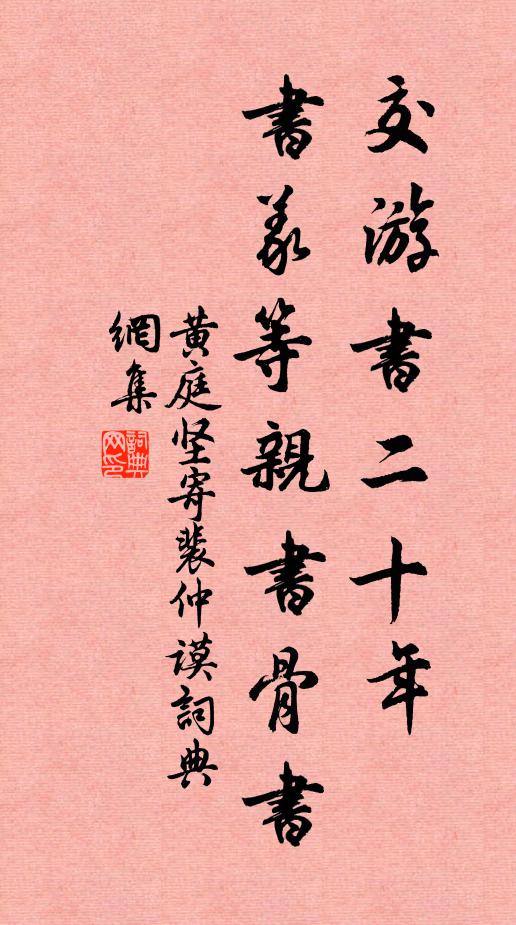 交游書二十年
書義等親書骨書
黄庭坚寄裴仲谟詞典
網集
詞典
网印